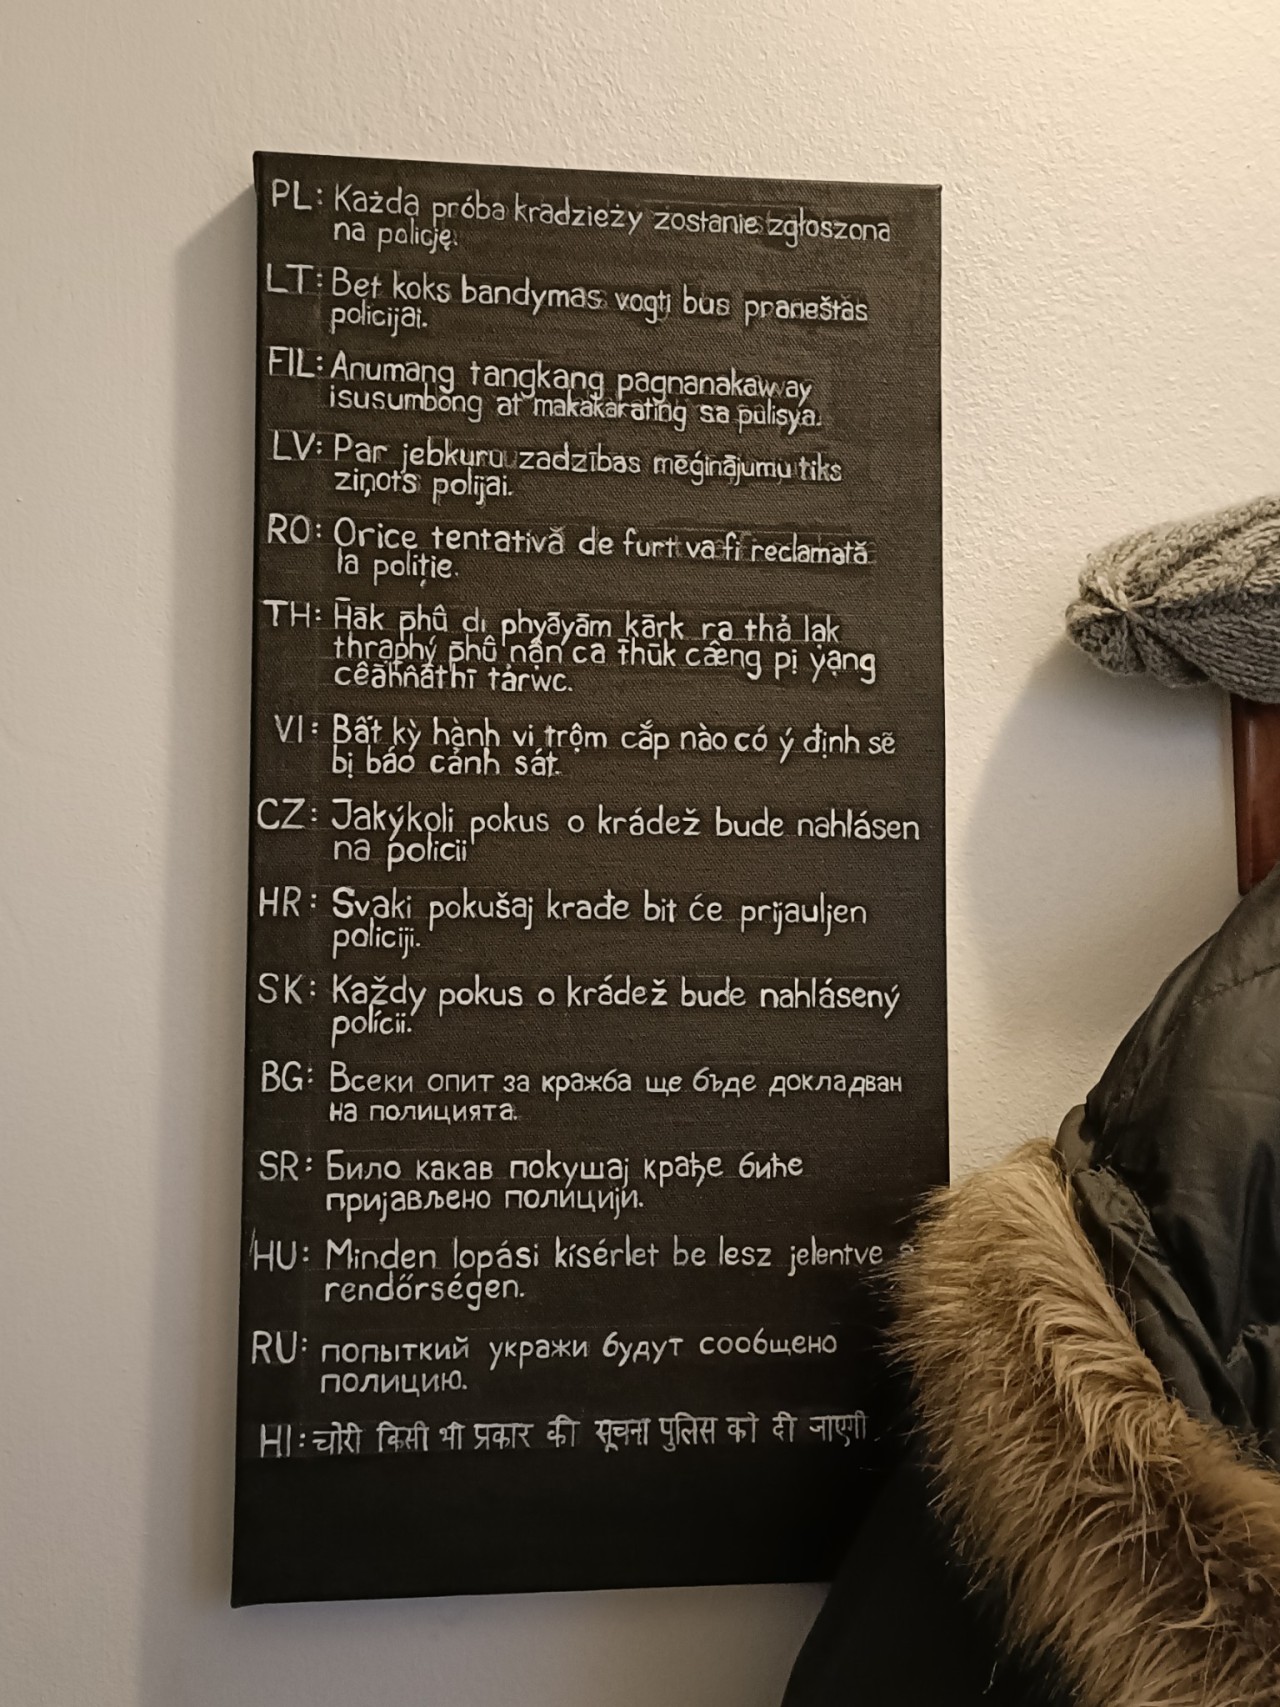 PL: Każda próba kradzieży zostanie zgłoszona
na policję.
LT: Bet koks bandymas vogti bus praneštas
policijai.
FIL: Anumang tangkang pagnanakaw ay
isusumbong at makakarating sa pulisya.
LV: Par jebkuru zādzības mēģinājumu tiks
ziņots polijai.
RO: Orice tentativă de furt va fi reclamată
la poliție.
TH: H̄āk p̄hû di phyāyām kārk ra thả lạk
thrạphý p̄hû nận ca t̄hūk cæ̂ng pị yạng
cêāh̄n̂āthī tảrwc.
VI: Bất kỳ hành vi trộm cắp nào có ý định sẽ
bị báo cảnh sát.
CZ: Jakýkoli pokus o krádež bude nahlásen
na policii
HR: Svaki pokušaj krađe bit će prijauljen
policiji.
SK: Každy pokus o krádež bude nahlásený
polícii.
BG: Всеки опит за кражба ще бъде докладван
на полицията.
SR: Било какав покушај крађе биће
пријављено полицији.
HU: Minden lopási kísérlet be lesz jelentve
rendőrségen.
RU: попыткий укражи будут сообщено
полицию.
HI: चोरी किसी भी प्रकार की सूचना पुलिस को दी जाएगी.